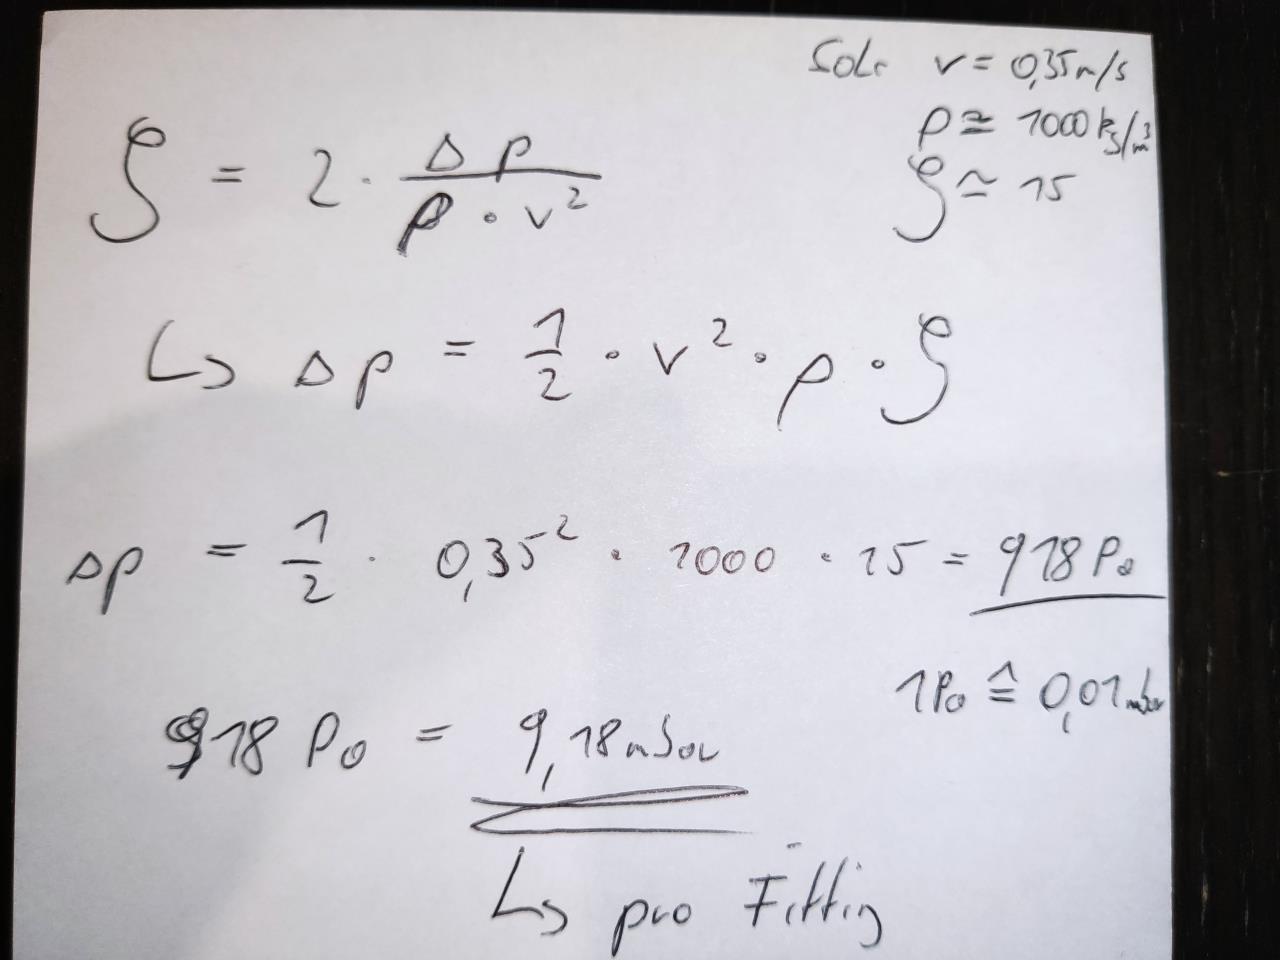 Sole v = 0,35 m/s
ρ ≅ 1000 kg/m³
ζ ≃ 15
ζ = 2 · Δp / (ρ · v²)
↳ Δp = 1/2 · v² · ρ · ζ
Δp = 1/2 · 0,35² · 1000 · 15 = 918 Pa
1 Pa ≙ 0,01 mbar
918 Pa = 9,18 mbar
↳ pro Fitting